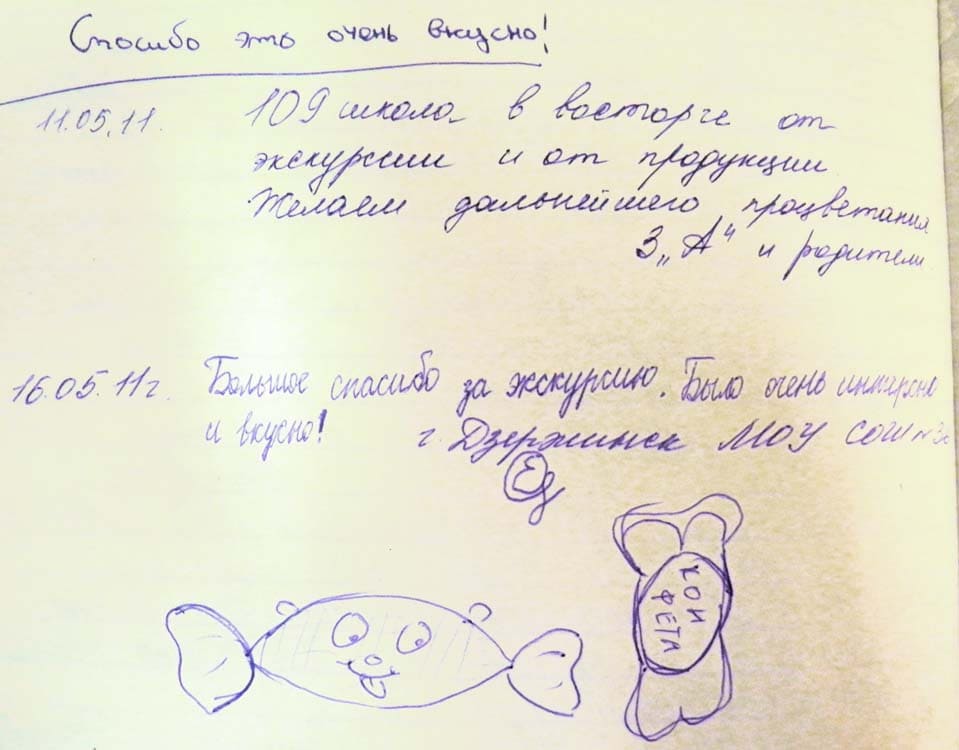 Спасибо это очень вкусно!
11.05.11. 109 школа в восторге от
экскурсии и от продукции
Желаем дальнейшего процветания
3 „А“ и родители
16.05.11г. Большое спасибо за экскурсию. Было очень интересно
и вкусно! г. Дзержинск МОУ СОШ №
КОН
ФЕТА